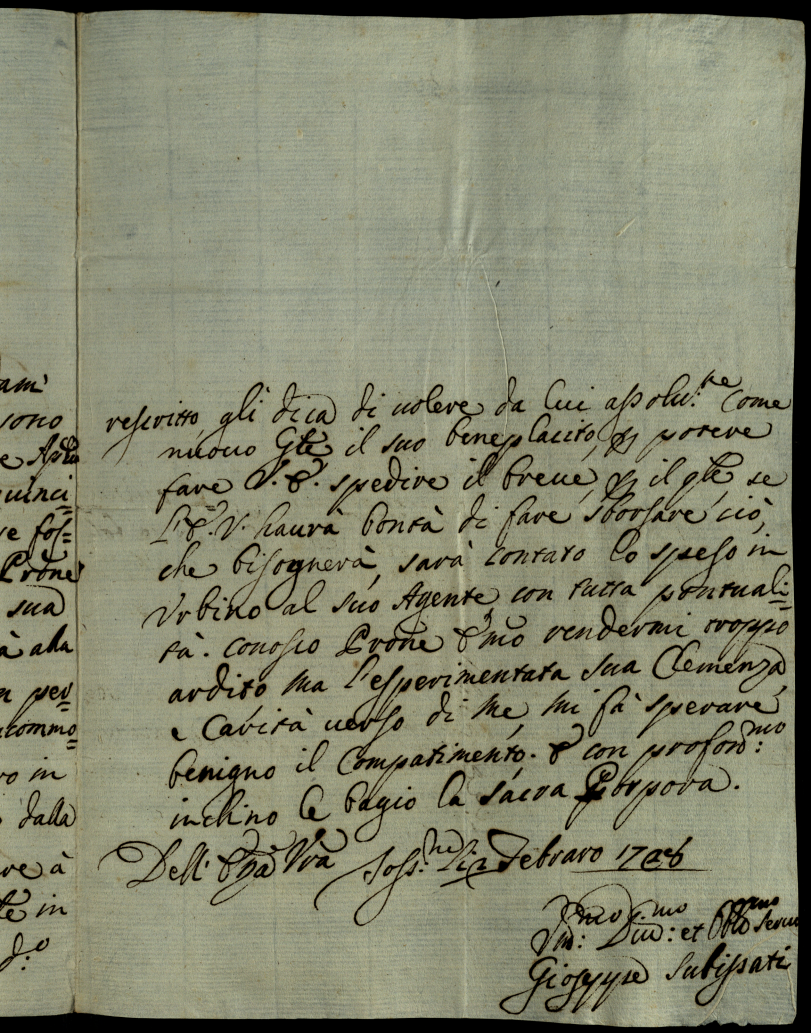 ami
sono
e Ap.lca
quinci=
re fos=
Prõne
sua
à alla
n per=
ncommo=
ro in
dalla
re à
te in
d:o
rescritto, gli dica di uolere da lui assolu:te come
nuouo Gãle il suo beneplacito, p potere
fare V. E. spedire il breue, p il qle se
l'E. V. haurà bontà di fare sborsare ciò,
che bisognerà, sarà contato lo speso in
Vrbino al suo Agente con tutta pontuali=
tà. Conosco Prõne Emo rendermi troppo
ardito ma l'esperimentata sua Clemenza,
e Carità uerso di me, mi fà sperare
benigno il Compatimento. E con profond:mo
inchino le bagio la sacra Porpora.
Dell' Emza Vrã Foss:ne Febraro 1726
Vm:mo Diu:mo et Obl:mo Seruo
Gioseppe Subissati